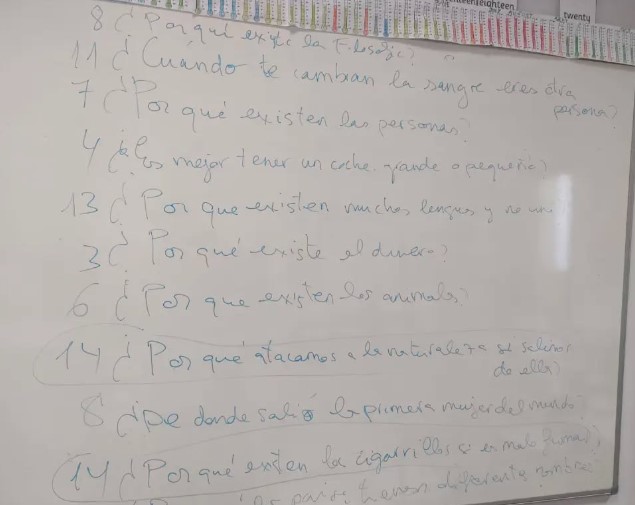 eighteen
twenty
8 ¿Por qué existe la Filosofía?
11 ¿Cuándo te cambian la sangre eres otra
persona?
7 ¿Por qué existen las personas?
4 ¿Es mejor tener un coche grande o pequeño?
13 ¿Por que existen muchas lenguas y no una
3 ¿Por qué existe el dinero?
6 ¿Por que existen los animales?
14 ¿Por qué atacamos a la naturaleza si salimos
de ella?
8 ¿De donde salió la primera mujer del mundo?
14 ¿Por qué existen los cigarrillos si es malo fumar?
países tienen diferente nombre